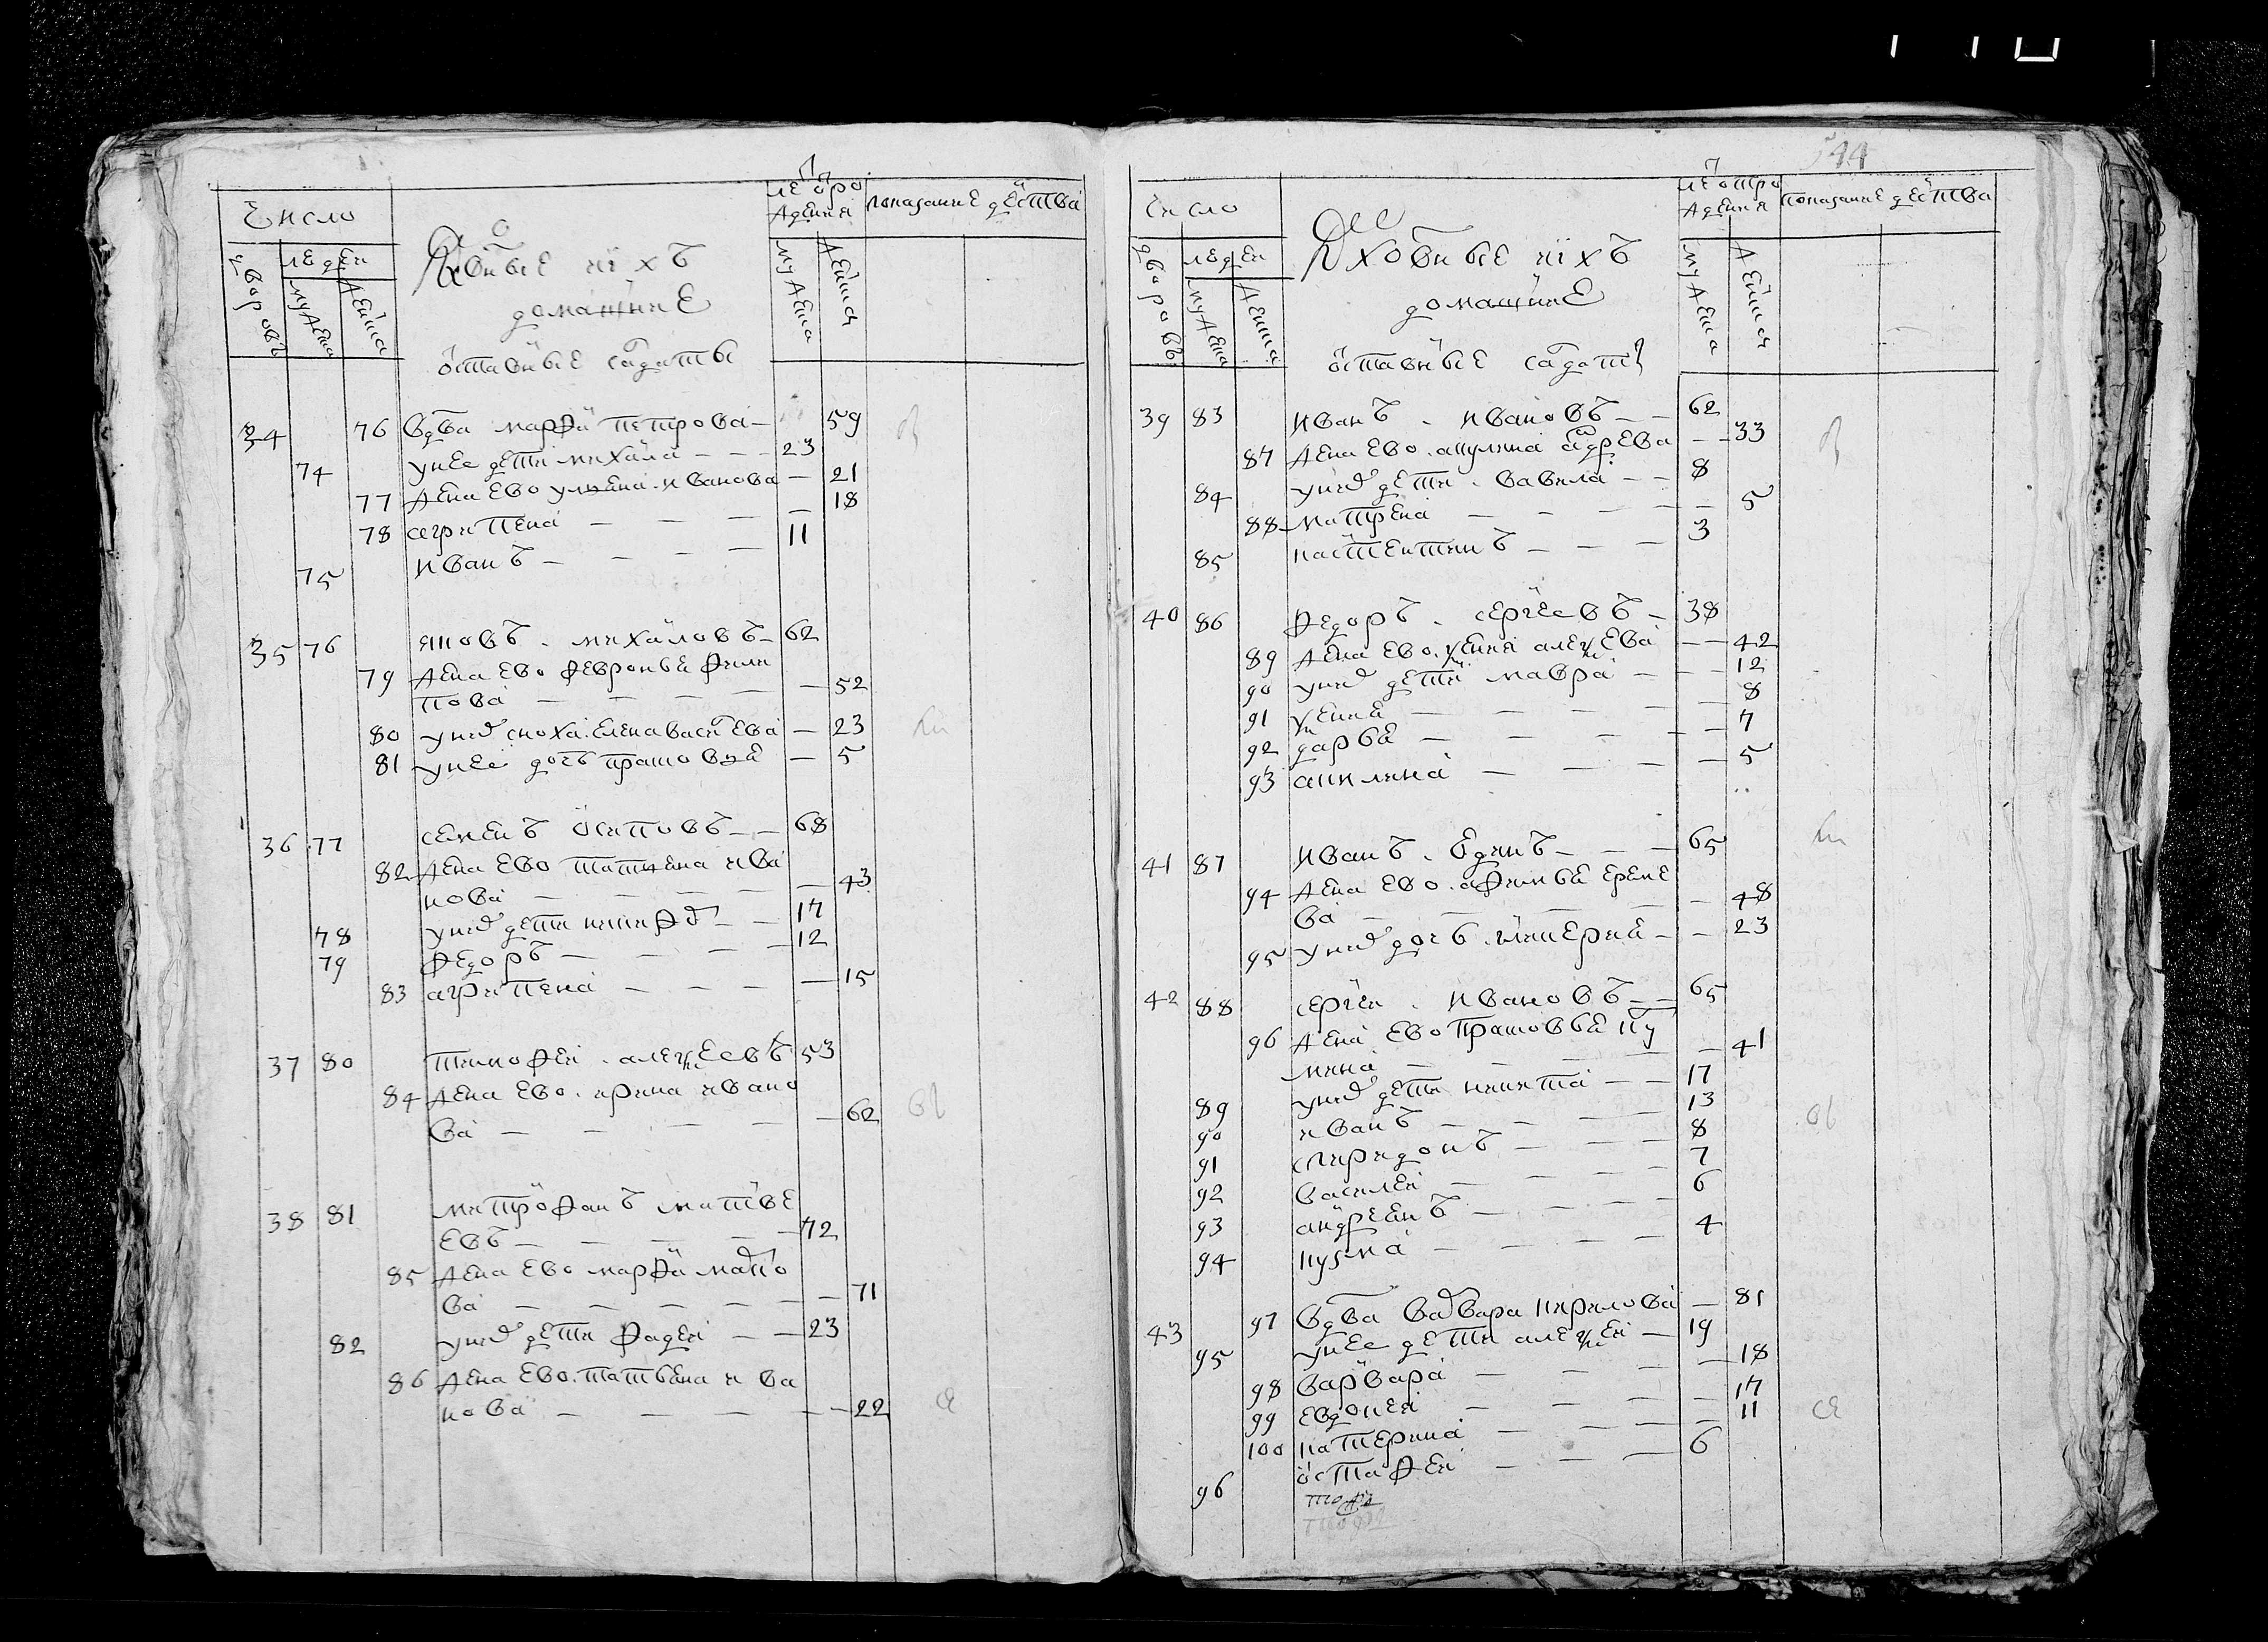 Число
людеи
дворовъ
мужеска
женска
Дховные и ихъ
домашние
оставные салдаты
лета от рождения
мужеска
женска
показание действа
34 76 вдва марфа петрова — 59
74 у нее дети михаила — — — 23
77 жена ево улиана иванова — 21
78 агрипена — — — — 18
75 иванъ — — — — 11
35 76 яковъ михаиловъ — 62
79 жена ево февронья фили
пова — — — — — 52
80 у них сноха елена васильева — 23
81 у нее дочь прасковья — 5
36 77 семенъ осиповъ — — 68
82 жена ево татияна ива
нова — — — — — 43
78 у них дети никифоръ — — 17
79 федоръ — — — — 12
83 агрипена — — — — 15
37 80 тимофеи алексеевъ 53
84 жена ево ирина ивано
ва — — — — — 62
38 81 митрофанъ матвѣе
евъ — — — — 72
85 жена ево марфа
ва — — — — — 71
82 у них дети фадеи — — 23
86 жена ево татьяна ива
нова — — — — — 22
544
Число
людеи
дворовъ
мужеска
женска
Дховные и ихъ
домашние
оставные салдаты
лета от рождения
мужеска
женска
показание действа
39 83 иванъ ивановъ — — 62
87 жена ево акулина андреева — — 33
84 у них дети вавила — — 8
88 матрена — — — — — 5
85 костентинъ — — — 3
40 86 федоръ сергеевъ — 38
89 жена ево ксения алексева — — 42
90 у них дети мавра — — — 12
91 ксения — — — — — 8
92 дарья — — — — — 7
93 акилина — — — 5
41 87 иванъ — — — 65
94 жена ево афимья ереме
ва — — — — — 48
95 у них дочь — — 23
42 88 сергеи ивановъ — — 65
96 жена ево прасковья ку
мина — — — — — 41
89 у них дети никита — — — 17
90 иванъ — — — — 13
91 спиридонъ — — — 8
92 василеи — — — — 7
93 андреянъ — — — — 6
94 кузма — — — — 4
43 97 вдва варвара кирилова — 81
95 у нее дети алексеи — 19
98 варвара — — — — 18
99 евдокея — — — — 17
100 катерина — — — — 11
96 остафеи — — — 6